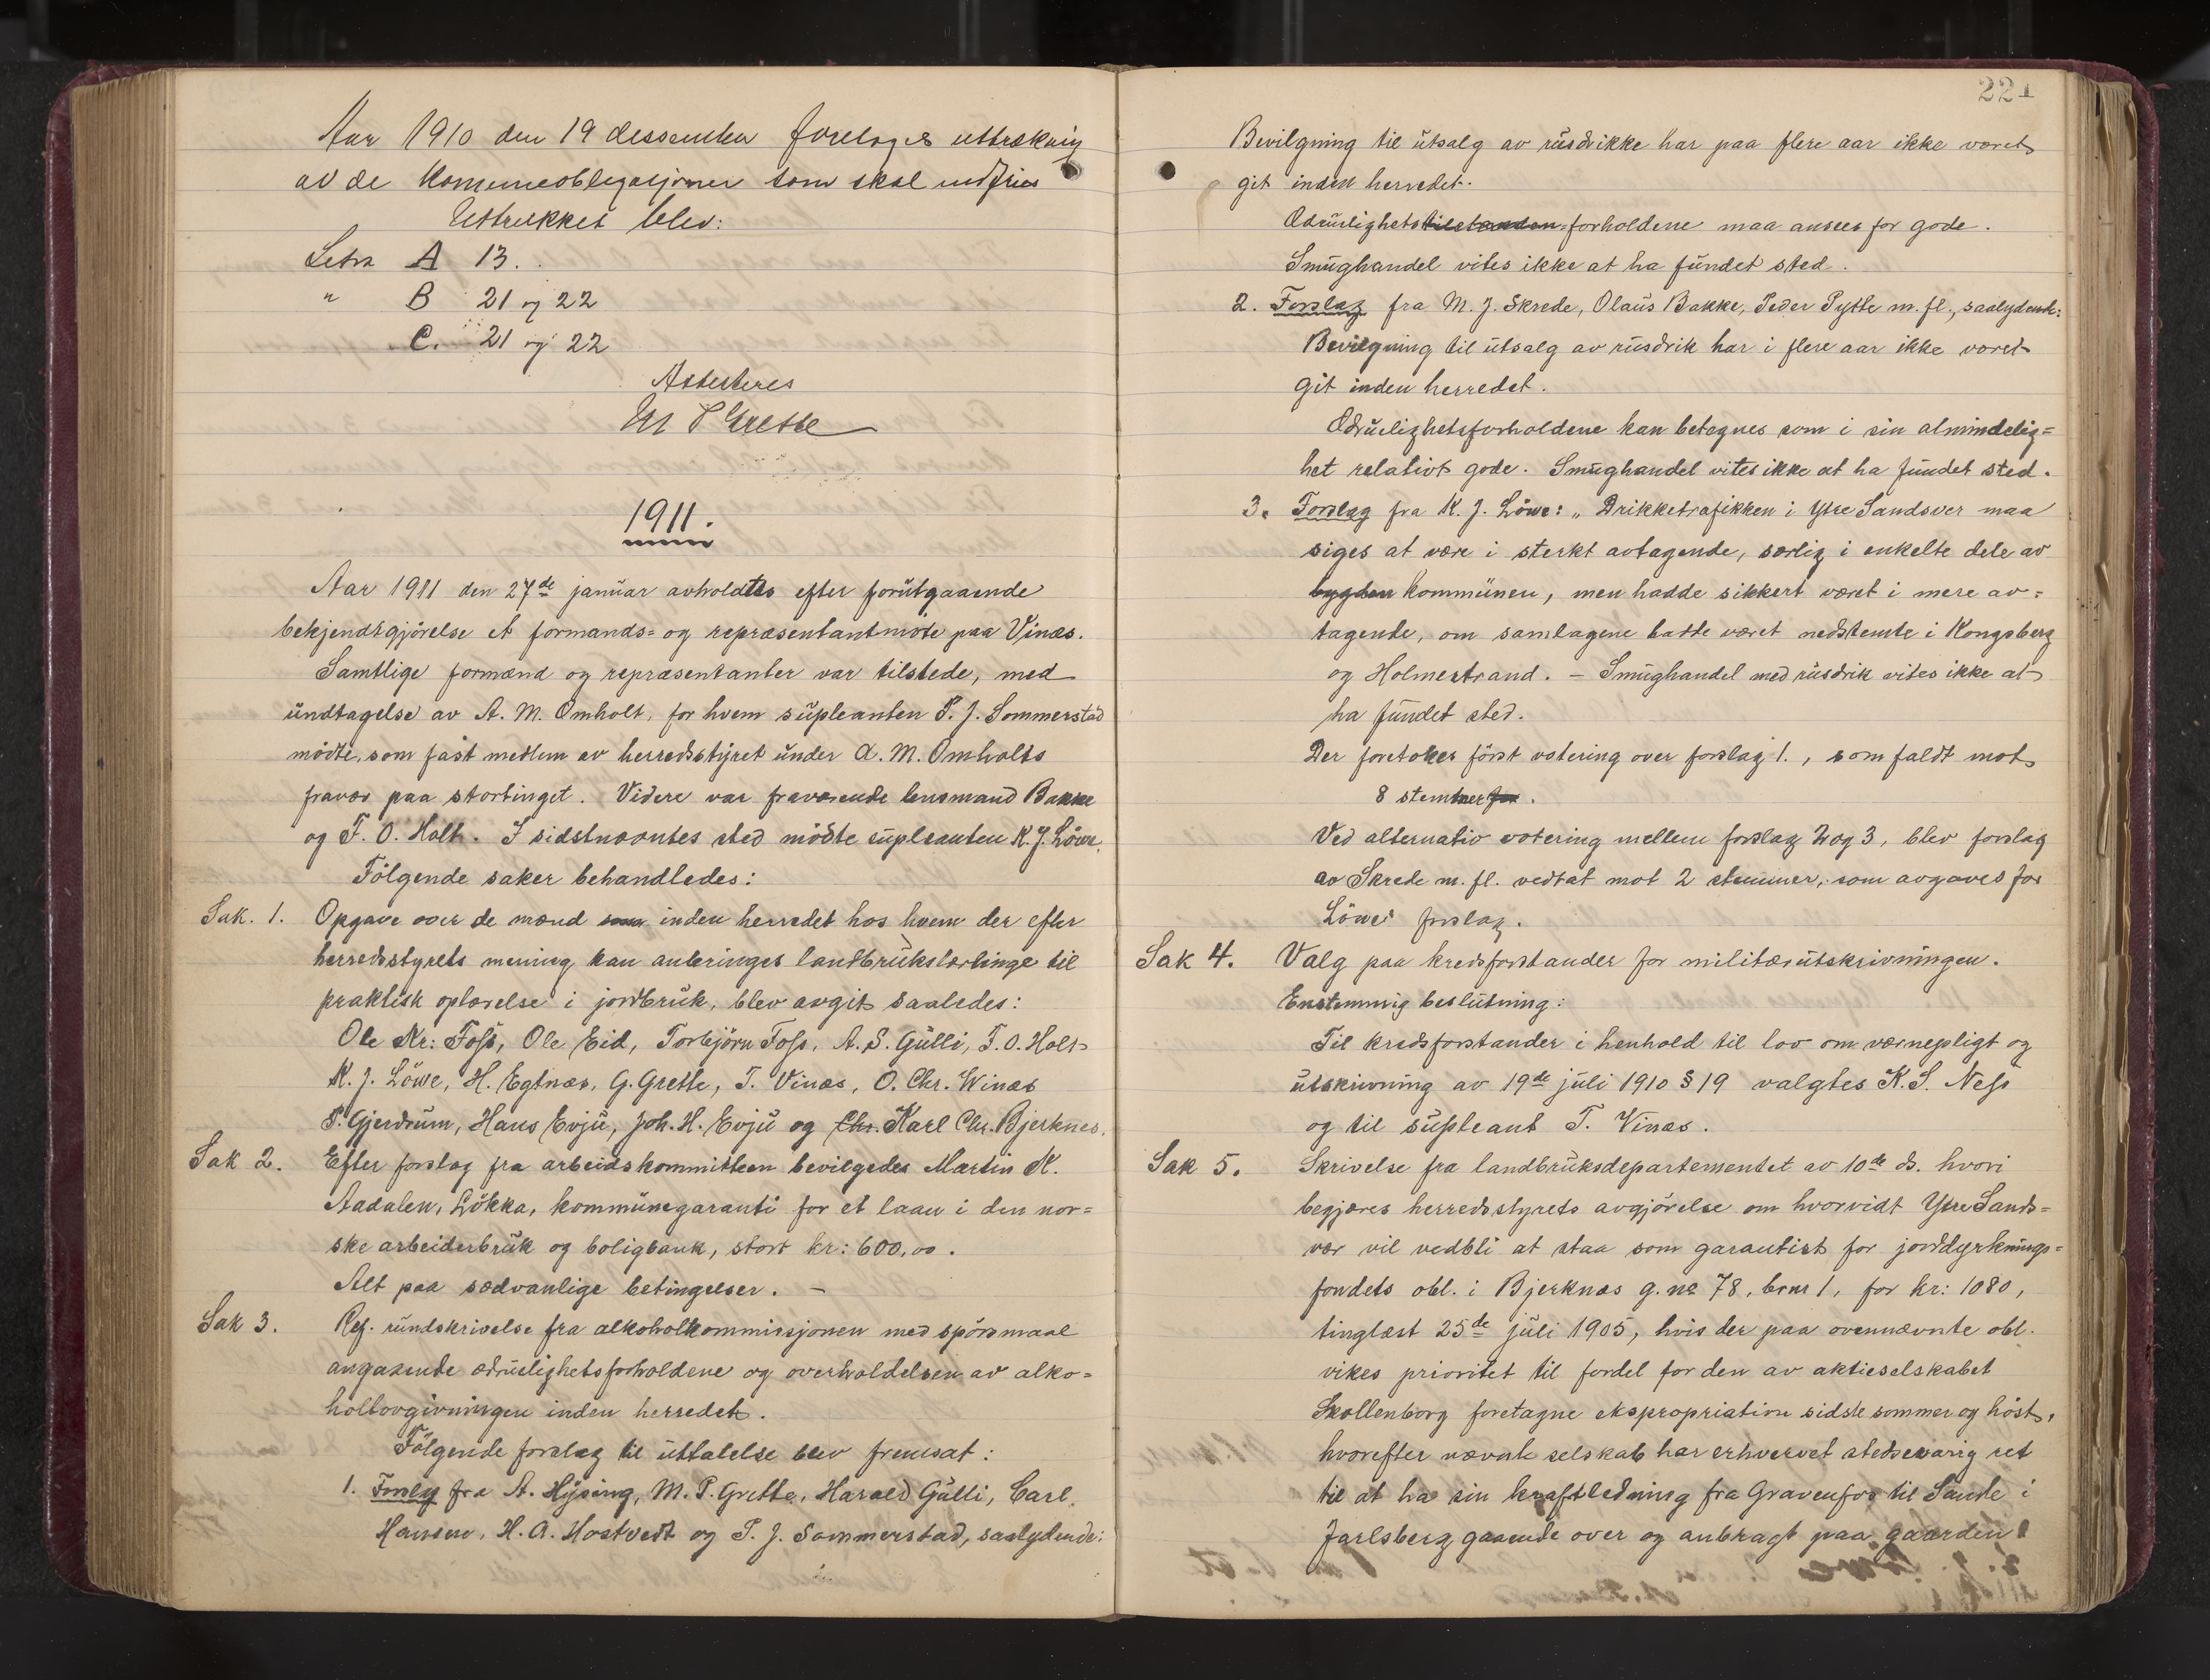 Aar 1910 den 19 dessember foretoges uttrækning
av de Komuneobligasjoner som skal indfries
Uttrukket blev:
Letra A 13.
" B 21 og 22
C. 21 og 22
Attesteres
M P Grette
1911.
Aar 1911 den 27de januar avholdtes efter forutgaaende
bekjendtgjörelse et formands= og repræsentantmöte paa Vinæs.
Samtlige formænd og repræsentanter var tilstede, med
undtagelse av A. M. Omholt, for hvem supleanten P. J. Sommerstad
mödte, som fast medlem av herredsstyret under A. M. Omholts
fravær paa stortinget. Videre var fraværende lensmand Bakke
og F. O. Holt. I sidstnævntes sted mödte supleanten K. J. Löwe.
Fölgende saker behandledes:
Sak. 1. Opgave over de mænd som inden herredet hos hvem der efter
herredsstyrets mening kan anbringes landbrukslærlinge til
praktisk oplærelse i jordbruk, blev avgit saaledes:
Ole Kr: Foss, Ole Eid, Torbjörn Foss, A. S. Gulli, F. O. Holt
K. J. Löwe, H. Egtnæs, G. Grette, T. Vinæs, O. Chr. Winæs
P. Gjerdrum, Hans Evju, Joh. H. Evju og Chr. Karl Chr. Bjerknes.
Sak 2. Efter forslag fra arbeidskommitteen bevilgedes Martin K.
Aadalen, Lökka, kommunegaranti for et laan i den nor=
ske arbeiderbruk og boligbank, stort kr: 600,00.
Alt paa sædvanlige betingelser. —
Sak 3. Ref. rundskrivelse fra alkoholkommissjonen med spörsmaal
angaaende ædruelighetsforholdene og overholdelsen av alko=
hollovgivningen inden herredet.
Fölgende forslag til uttalelse blev fremsat:
1. Forslag fra A. Hysing, M. P. Grette, Harald Gulli, Carl.
Hansen, H. A. Hostvedt og P. J. Sommerstad, saalydende:
221
Bevilgning til utsalg av rusdrikke har paa flere aar ikke været
git inden herredet.
Ædruelighetstilstanden=forholdene maa ansees for gode.
Smughandel vites ikke at ha fundet sted.
2. Forslag fra M. J. Skrede, Olaus Bakke, Peder Pytte m. fl., saalydende:
Bevilgning til utsalg av rusdrik har i flere aar ikke været
git inden herredet.
Ædruelighetsforholdene kan betegnes som i sin almindelig=
het relativt gode. Smughandel vites ikke at ha fundet sted.
3. Forslag fra K. J. Löwe: „ Drikketrafikken i Ytre Sandsver maa
siges at være i sterkt avtagende, særlig i enkelte dele av
bygden kommunen, men hadde sikkert været i mere av=
tagende, om samlagene hadde været nedstemte i Kongsberg
og Holmestrand. — Smughandel med rusdrik vites ikke at
ha fundet sted.
Der foretokes först votering over forslag 1., som faldt mot
8 stemmer for.
Ved alternativ votering mellem forslag 2 og 3, blev forslag
av Skrede m. fl. vedtat mot 2 stemmer, som avgaves for
Löwes forslag.
Sak 4. Valg paa kredsforstander for militærutskrivningen.
Enstemmig beslutning:
Til kredsforstander i henhold til lov om værnepligt og
utskrivning av 19de juli 1910 § 19 valgtes K. S. Ness
og til supleant T. Vinæs.
Sak 5. Skrivelse fra landbruksdepartementet av 10de ds. hvori
begjæres herredsstyrets avgjörelse om hvorvidt Ytre Sands=
vær vil vedbli at staa som garantist for jorddyrknings=
fondets obl. i Bjerknæs g. no 78, brnr 1, for kr: 1080,
tinglæst 25de juli 1905, hvis der paa ovennævnte obl.
vikes prioritet til fordel for den av aktieselskabet
Skollenborg foretagne ekspropriation sidste sommer og höst,
hvorefter nævnte selskab har erhvervet stedsevarig ret
til at ha sin kraftledning fra Gravenfos til Sande i
Jarlsberg gaaende over og anbragt paa gaarden